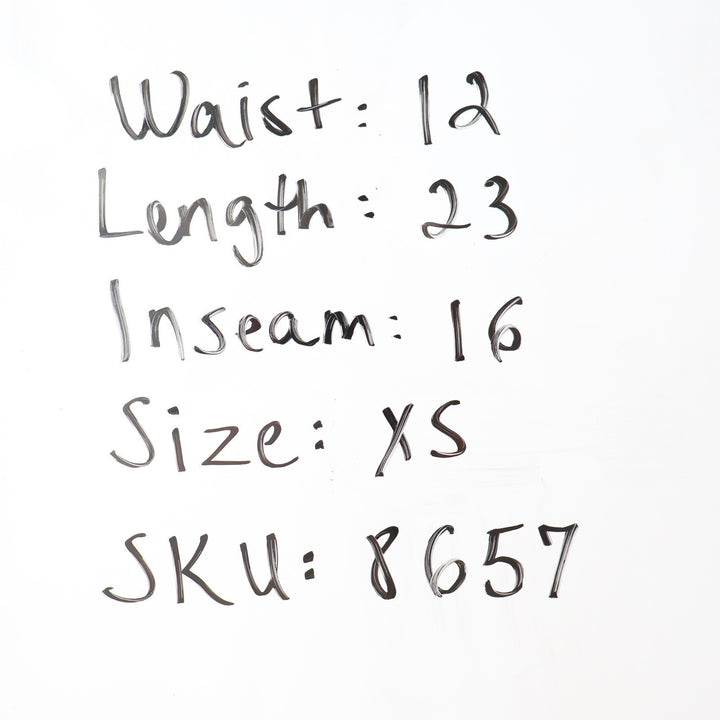 Waist: 12
Length: 23
Inseam: 16
Size: XS
SKU: 8657